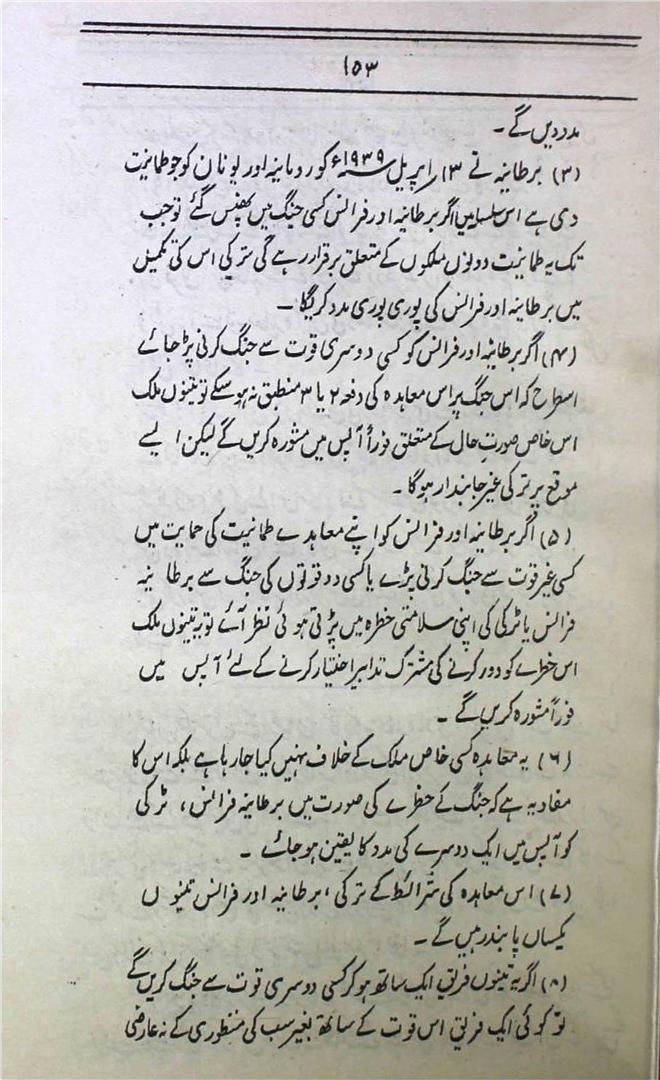 ۱۵۳
مدد دیں گے۔
(۳) برطانیہ نے ۱۳ اپریل ۱۹۳۹ء کو رومانیہ اور یونان کو جو طمانیت
دی ہے اس سلسلہ میں اگر برطانیہ اور فرانس کسی جنگ میں پھنس گئے تو جب
تک یہ طمانیت دونوں ملکوں کے متعلق برقرار رہے گی ترکی اس کی تکمیل
میں برطانیہ اور فرانس کی پوری پوری مدد کریگا۔
(۴) اگر برطانیہ اور فرانس کو کسی دوسری قوت سے جنگ کرنی پڑ جائے
اسطرح کہ اس جنگ پر اس معاہدہ کی دفعہ ۲ یا ۳ منطبق نہ ہو سکے تو تینوں ملک
اس خاص صورتِ حال کے متعلق فوراً آپس میں مشورہ کریں گے لیکن ایسے
موقع پر ترکی غیر جابندار ہوگا۔
(۵) اگر برطانیہ اور فرانس کو اپنے معاہدے طمانیت کی حمایت میں
کسی غیر قوت سے جنگ کرنی پڑے یا کسی دو قوتوں کی جنگ سے برطانیہ
فرانس یا ٹرکی کی اپنی سلامتی خطرہ میں پڑتی ہوئی نظر آئے تو یہ تینوں ملک
اس خطرے کو دور کرنے کی مشترک تدابیر اختیار کرنے کے لئے آپس میں
فوراً مشورہ کریں گے۔
(۶) یہ معاہدہ کسی خاص ملک کے خلاف نہیں کیا جا رہا ہے بلکہ اس کا
مفاد یہ ہے کہ جنگ کے خطرے کی صورت میں برطانیہ فرانس، ٹرکی
کو آپس میں ایک دوسرے کی مدد کا یقین ہو جائے۔
(۷) اس معاہدہ کی شرائط کے ترکی، برطانیہ اور فرانس تینوں
یکساں پابند رہیں گے۔
(۸) اگر یہ تینوں فریق ایک ساتھ ہو کر کسی دوسری قوت سے جنگ کریں گے
تو کوئی ایک فریق اس قوت کے ساتھ بغیر سب کی منظوری کے نہ عارضی